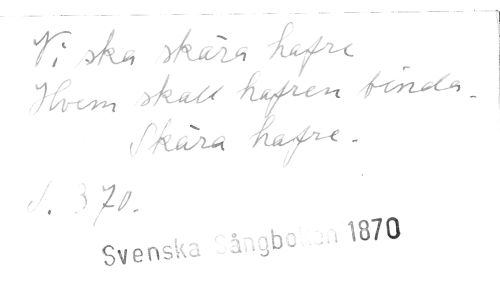 Vi ska skära hafre
Hvem skall hafren binda.
Skära hafre.
S. 370.
Svenska Sångboken 1870